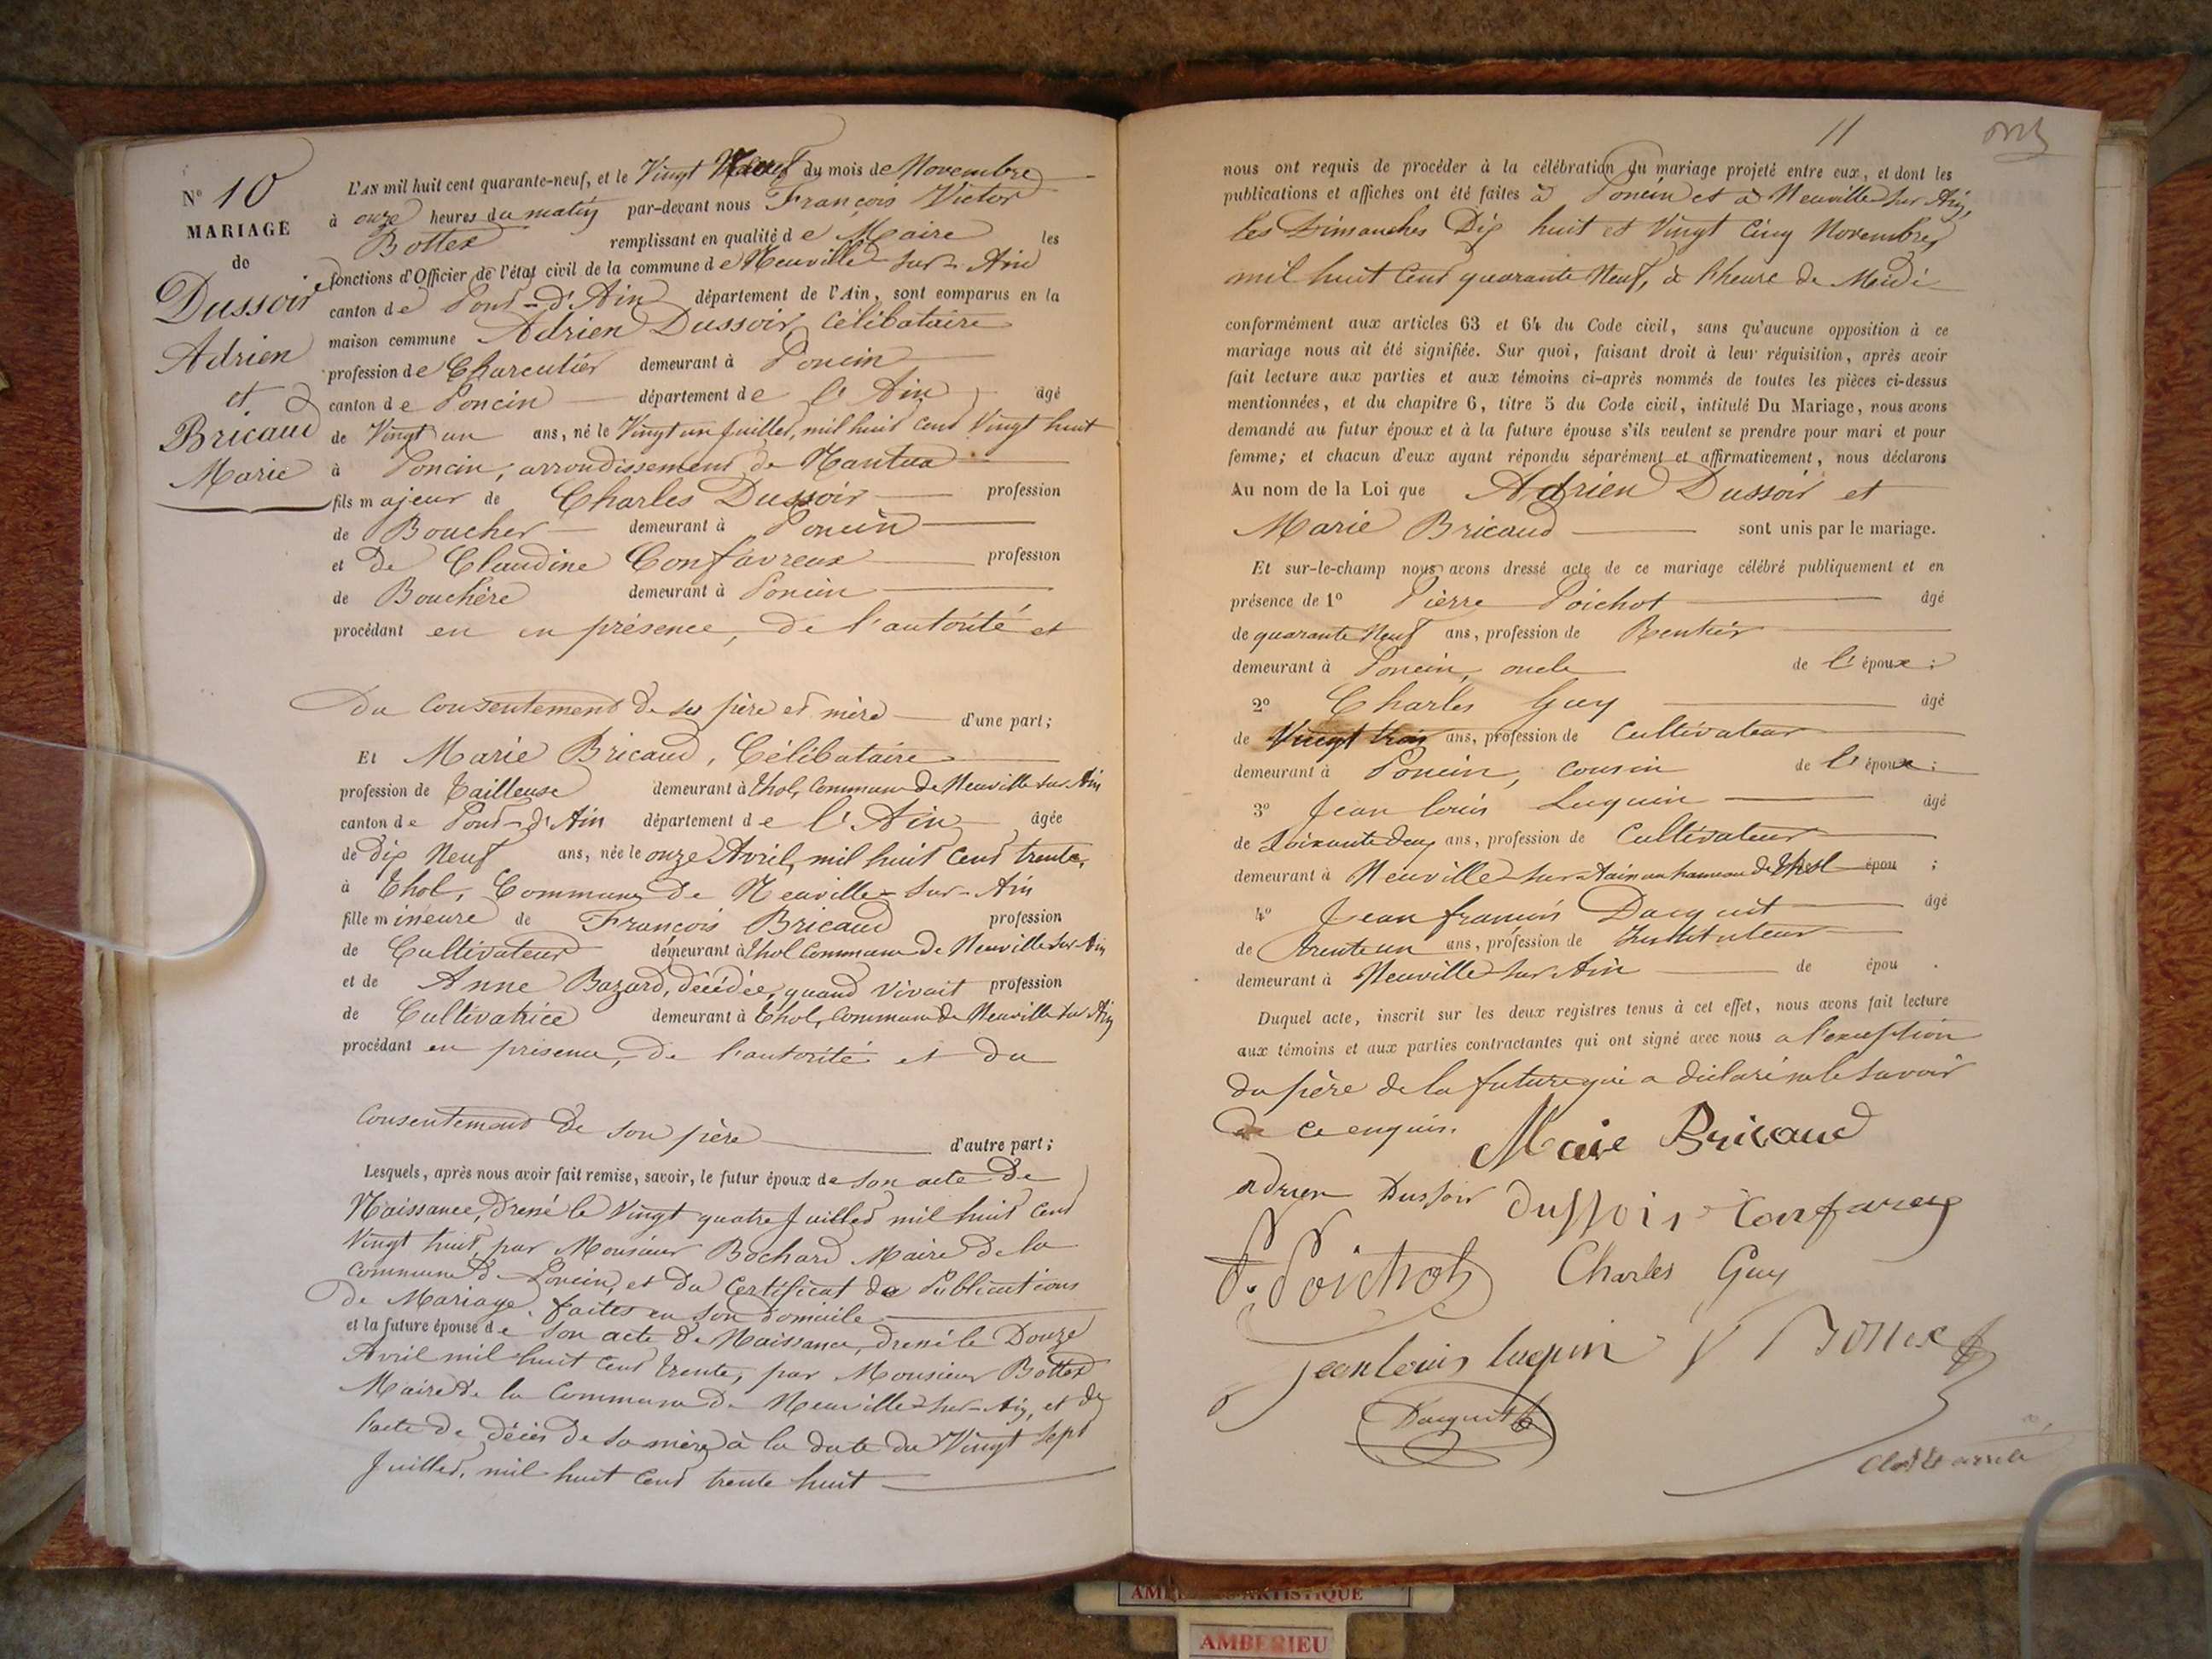 N° 10
MARIAGE
de
Dussoir
Adrien
et
Bricaud
Marie
L'AN mil huit cent quarante-neuf, et le Vingt Neuf du mois de Novembre
à onze heures du matin par-devant nous François Victor
Bottex remplissant en qualité de Maire les
fonctions d'Officier de l'état civil de la commune de Neuville-sur-Ain
canton de Pont-d'Ain département de l'Ain, sont comparus en la
maison commune Adrien Dussoir, célibataire
profession de Charcutier demeurant à Poncin
canton de Poncin département de l'Ain âgé
de Vingt un ans, né le Vingt un Juillet, mil huit cent Vingt huit
à Poncin, arrondissement de Nantua
fils majeur de Charles Dussoir profession
de Boucher demeurant à Poncin
et de Claudine Confavreux profession
de Bouchère demeurant à Poncin
procédant en en présence, de l'autorité et
du consentement de ses père et mère d'une part;
Et Marie Bricaud, Célibataire
profession de Tailleuse demeurant à Thol, Commune de Neuville sur Ain
canton de Pont-d'Ain département de l'Ain âgée
de dix Neuf ans, née le onze Avril, mil huit cent trente,
à Thol, Commune de Neuville-sur-Ain
fille mineure de François Bricaud profession
de Cultivateur demeurant à Thol Commune de Neuville sur Ain
et de Anne Bazard, décédée, quand vivait profession
de Cultivatrice demeurant à Thol, Commune de Neuville sur Ain
procédant en présence, de l'autorité et du
consentement de son père d'autre part;
Lesquels, après nous avoir fait remise, savoir, le futur époux de son acte de
Naissance, dressé le Vingt quatre Juillet mil huit cent
Vingt huit, par Monsieur Bochard Maire de la
commune de Poncin, et du Certificat de Publications
de Mariage, faites en son domicile
et la future épouse de son acte de Naissance, dressé le Douze
Avril mil huit cent trente, par Monsieur Bottex
Maire de la Commune de Neuville-sur-Ain, et de
l'acte de décès de sa mère à la date du Vingt Sept
Juillet, mil huit cent trente huit
11
nous ont requis de procéder à la célébration du mariage projeté entre eux, et dont les
publications et affiches ont été faites à Poncin et à Neuville sur Ain,
les Dimanches Dix huit et Vingt Cinq Novembre,
mil huit cent quarante Neuf, à l'heure de Midi
conformément aux articles 63 et 64 du Code civil, sans qu'aucune opposition à ce
mariage nous ait été signifiée. Sur quoi, faisant droit à leur réquisition, après avoir
fait lecture aux parties et aux témoins ci-après nommés de toutes les pièces ci-dessus
mentionnées, et du chapitre 6, titre 5 du Code civil, intitulé Du Mariage, nous avons
demandé au futur époux et à la future épouse s'ils veulent se prendre pour mari et pour
femme; et chacun d'eux ayant répondu séparément et affirmativement, nous déclarons
Au nom de la Loi que Adrien Dussoir et
Marie Bricaud sont unis par le mariage.
Et sur-le-champ nous avons dressé acte de ce mariage célébré publiquement et en
présence de 1° Pierre Poichot âgé
de quarante Neuf ans, profession de Rentier
demeurant à Poncin, oncle de l'époux;
2° Charles Guy âgé
de Vingt trois ans, profession de Cultivateur
demeurant à Poncin, cousin de l'époux;
3° Jean Louis Luquin âgé
de Soixante deux ans, profession de Cultivateur
demeurant à Neuville-sur-Ain au hameau de Thol épou ;
4° Jean françois Dacquit âgé
de trente un ans, profession de Instituteur
demeurant à Neuville-sur-Ain de épou .
Duquel acte, inscrit sur les deux registres tenus à cet effet, nous avons fait lecture
aux témoins et aux parties contractantes qui ont signé avec nous a l'exception
du père de la future qui a déclaré ne le savoir
de ce enquis.
Marie Bricaud
adrien Dussoir Dussoir Confavreux
P. Poichot Charles Guy
Jean louis luquin V Bottex
Dacquit
Clos et arrêté
AMBERIEU